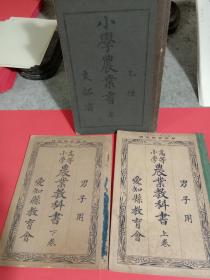 小學農業書
乙種
文部省
高等小學 農業教科書 下卷
男子用
愛知縣教育會
高等小學 農業教科書 上卷
男子用
愛知縣教育會